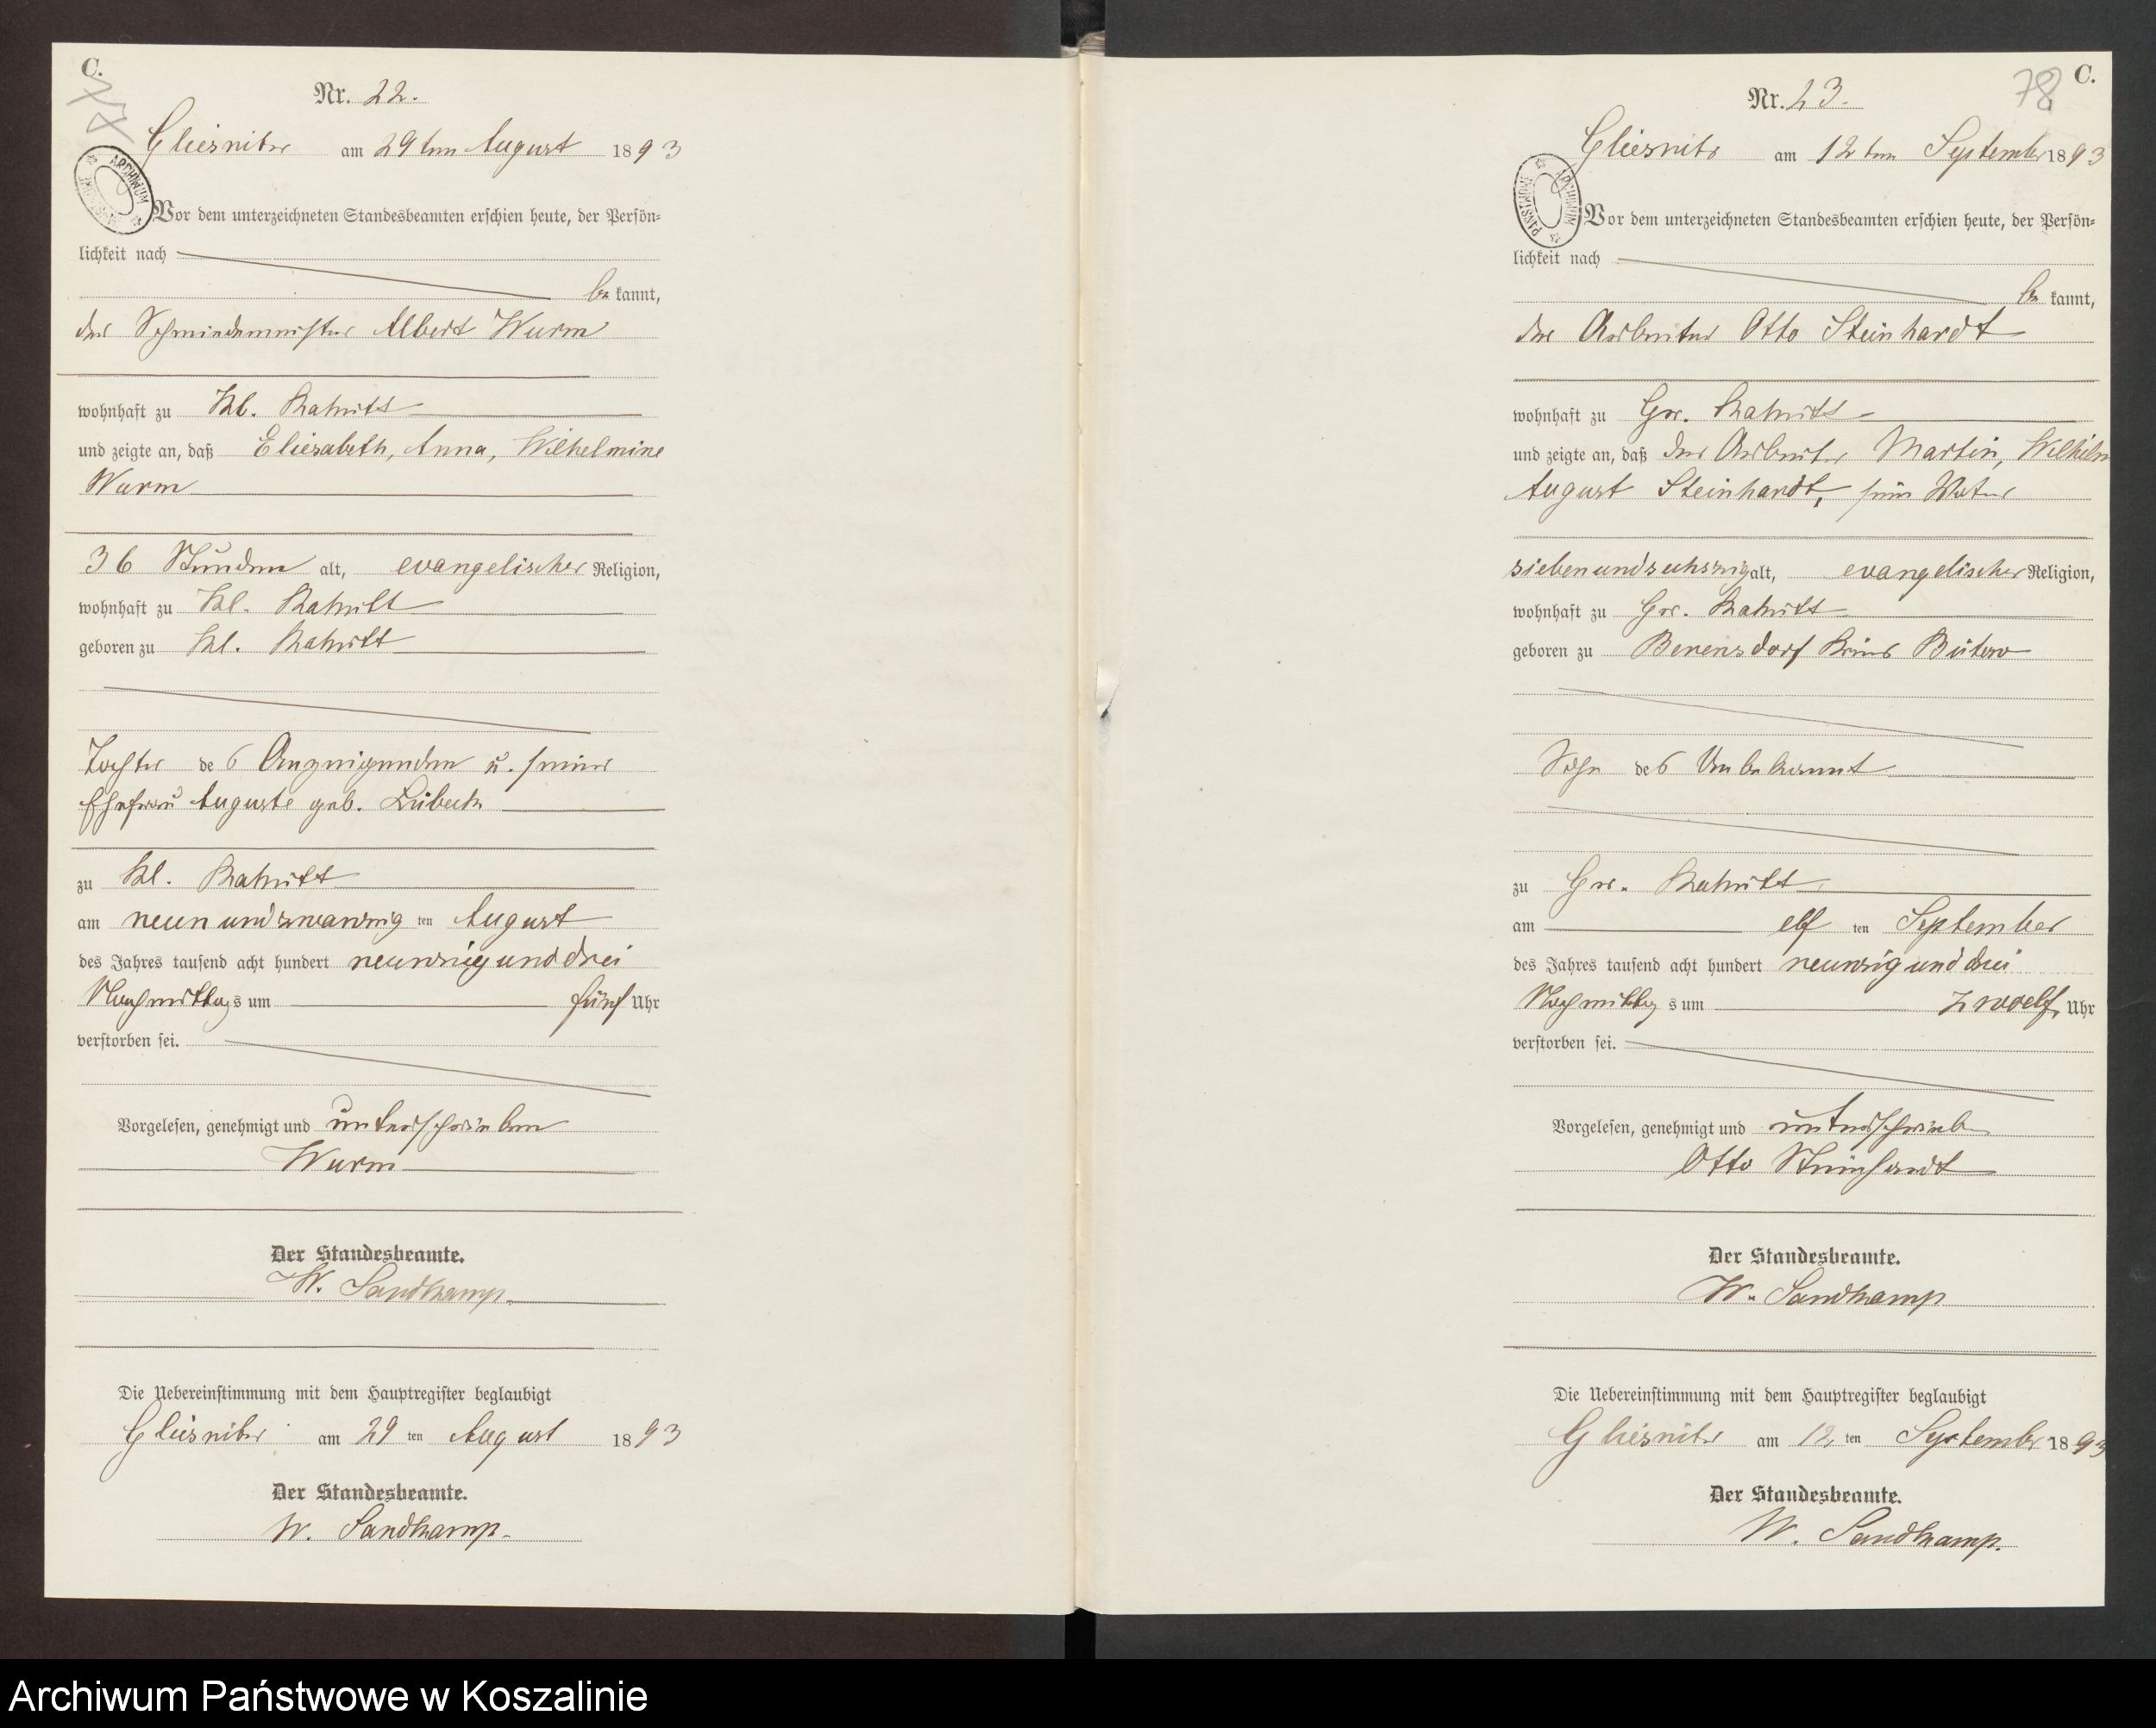 C.
Nr. 22.
Gliesnitz am 29ten August 1893
ARCHIWUM PAŃSTWOWE
Vor dem unterzeichneten Standesbeamten erschien heute, der Persön-
lichkeit nach
be kannt,
der Schmiedemeister Albert Wurm
wohnhaft zu Kl. Rakitt
und zeigte an, daß Eliesabeth, Anna, Wilhelmine
Wurm
36 Stunden alt, evangelischer Religion,
wohnhaft zu Kl. Rakitt
geboren zu Kl. Rakitt
Tochter des Anzeigenden u. seiner
Ehefrau Auguste geb. Lübeck
zu Kl. Rakitt
am neunundzwanzig ten August
des Jahres tausend acht hundert neunzig und drei
Nachmittags um fünf Uhr
verstorben sei.
Vorgelesen, genehmigt und unterschrieben
Wurm
Der Standesbeamte.
W. Sandkamp
Die Uebereinstimmung mit dem Hauptregister beglaubigt
Gliesnitz am 29 ten August 1893
Der Standesbeamte.
W. Sandkamp.
78 C.
Nr. 23.
Gliesnitz am 12ten September 1893
ARCHIWUM PAŃSTWOWE
Vor dem unterzeichneten Standesbeamten erschien heute, der Persön-
lichkeit nach
be kannt,
der Arbeiter Otto Steinhardt
wohnhaft zu Gr. Rakitt
und zeigte an, daß der Arbeiter Martin, Wilhelm
August Steinhardt, sein Vater
siebenundsechszig alt, evangelischer Religion,
wohnhaft zu Gr. Rakitt
geboren zu Berensdorf Kreis Bütow
Sohn des Unbekannt
zu Gr. Rakitt
am elf ten September
des Jahres tausend acht hundert neunzig und drei
Nachmittags um zwoelf Uhr
verstorben sei.
Vorgelesen, genehmigt und unterschrieben
Otto Steinhardt
Der Standesbeamte.
W. Sandkamp
Die Uebereinstimmung mit dem Hauptregister beglaubigt
Gliesnitz am 12. ten September 1893
Der Standesbeamte.
W. Sandkamp.
Archiwum Państwowe w Koszalinie